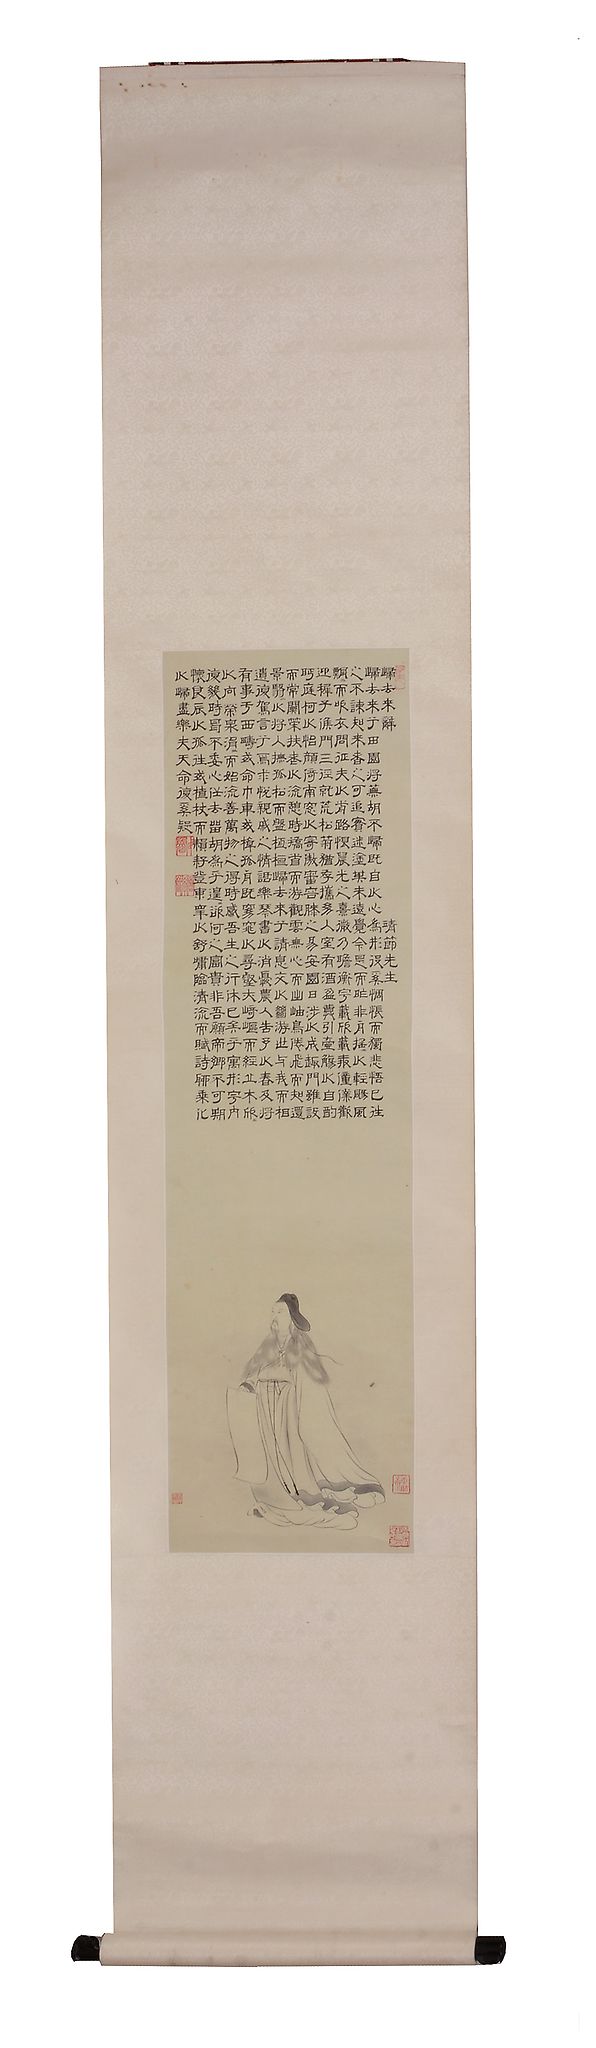 歸去來辭 靖節先生
歸去來兮田園將蕪胡不歸既自以心為形役奚惆悵而獨悲悟已往
之不諫知來者之可追實迷塗其未遠覺今是而昨非舟搖以輕颺風
飄而吹衣問征夫以前路恨晨光之熹微乃瞻衡宇載欣載奔僮僕歡
迎稚子候門三徑就荒松菊猶存攜幼入室有酒盈樽引壺觴以自酌
眄庭柯以怡顏倚南窗以寄傲審容膝之易安園日涉以成趣門雖設
而常關策扶老以流憩時矯首而游觀雲無心而出岫鳥倦飛而知還
景翳以將入撫孤松而盤桓歸去來兮請息交以絕游世与我而相
遺復駕言兮焉求悅親戚之情話樂琴書以消憂農人告予以春及將
有事于西疇或命巾車或棹孤舟既窈窕以尋壑亦崎嶇而經丘木欣
以向榮泉涓而始流善萬物之得時感吾生之行休已矣乎寓形宇内
復幾時曷不委心任去留胡為乎遑欲何之富貴非吾願帝鄉不可期
懷良辰以孤往或植杖而耘耔登東皋以舒嘯臨清流而賦詩聊乘化
以歸盡樂夫天命復奚疑